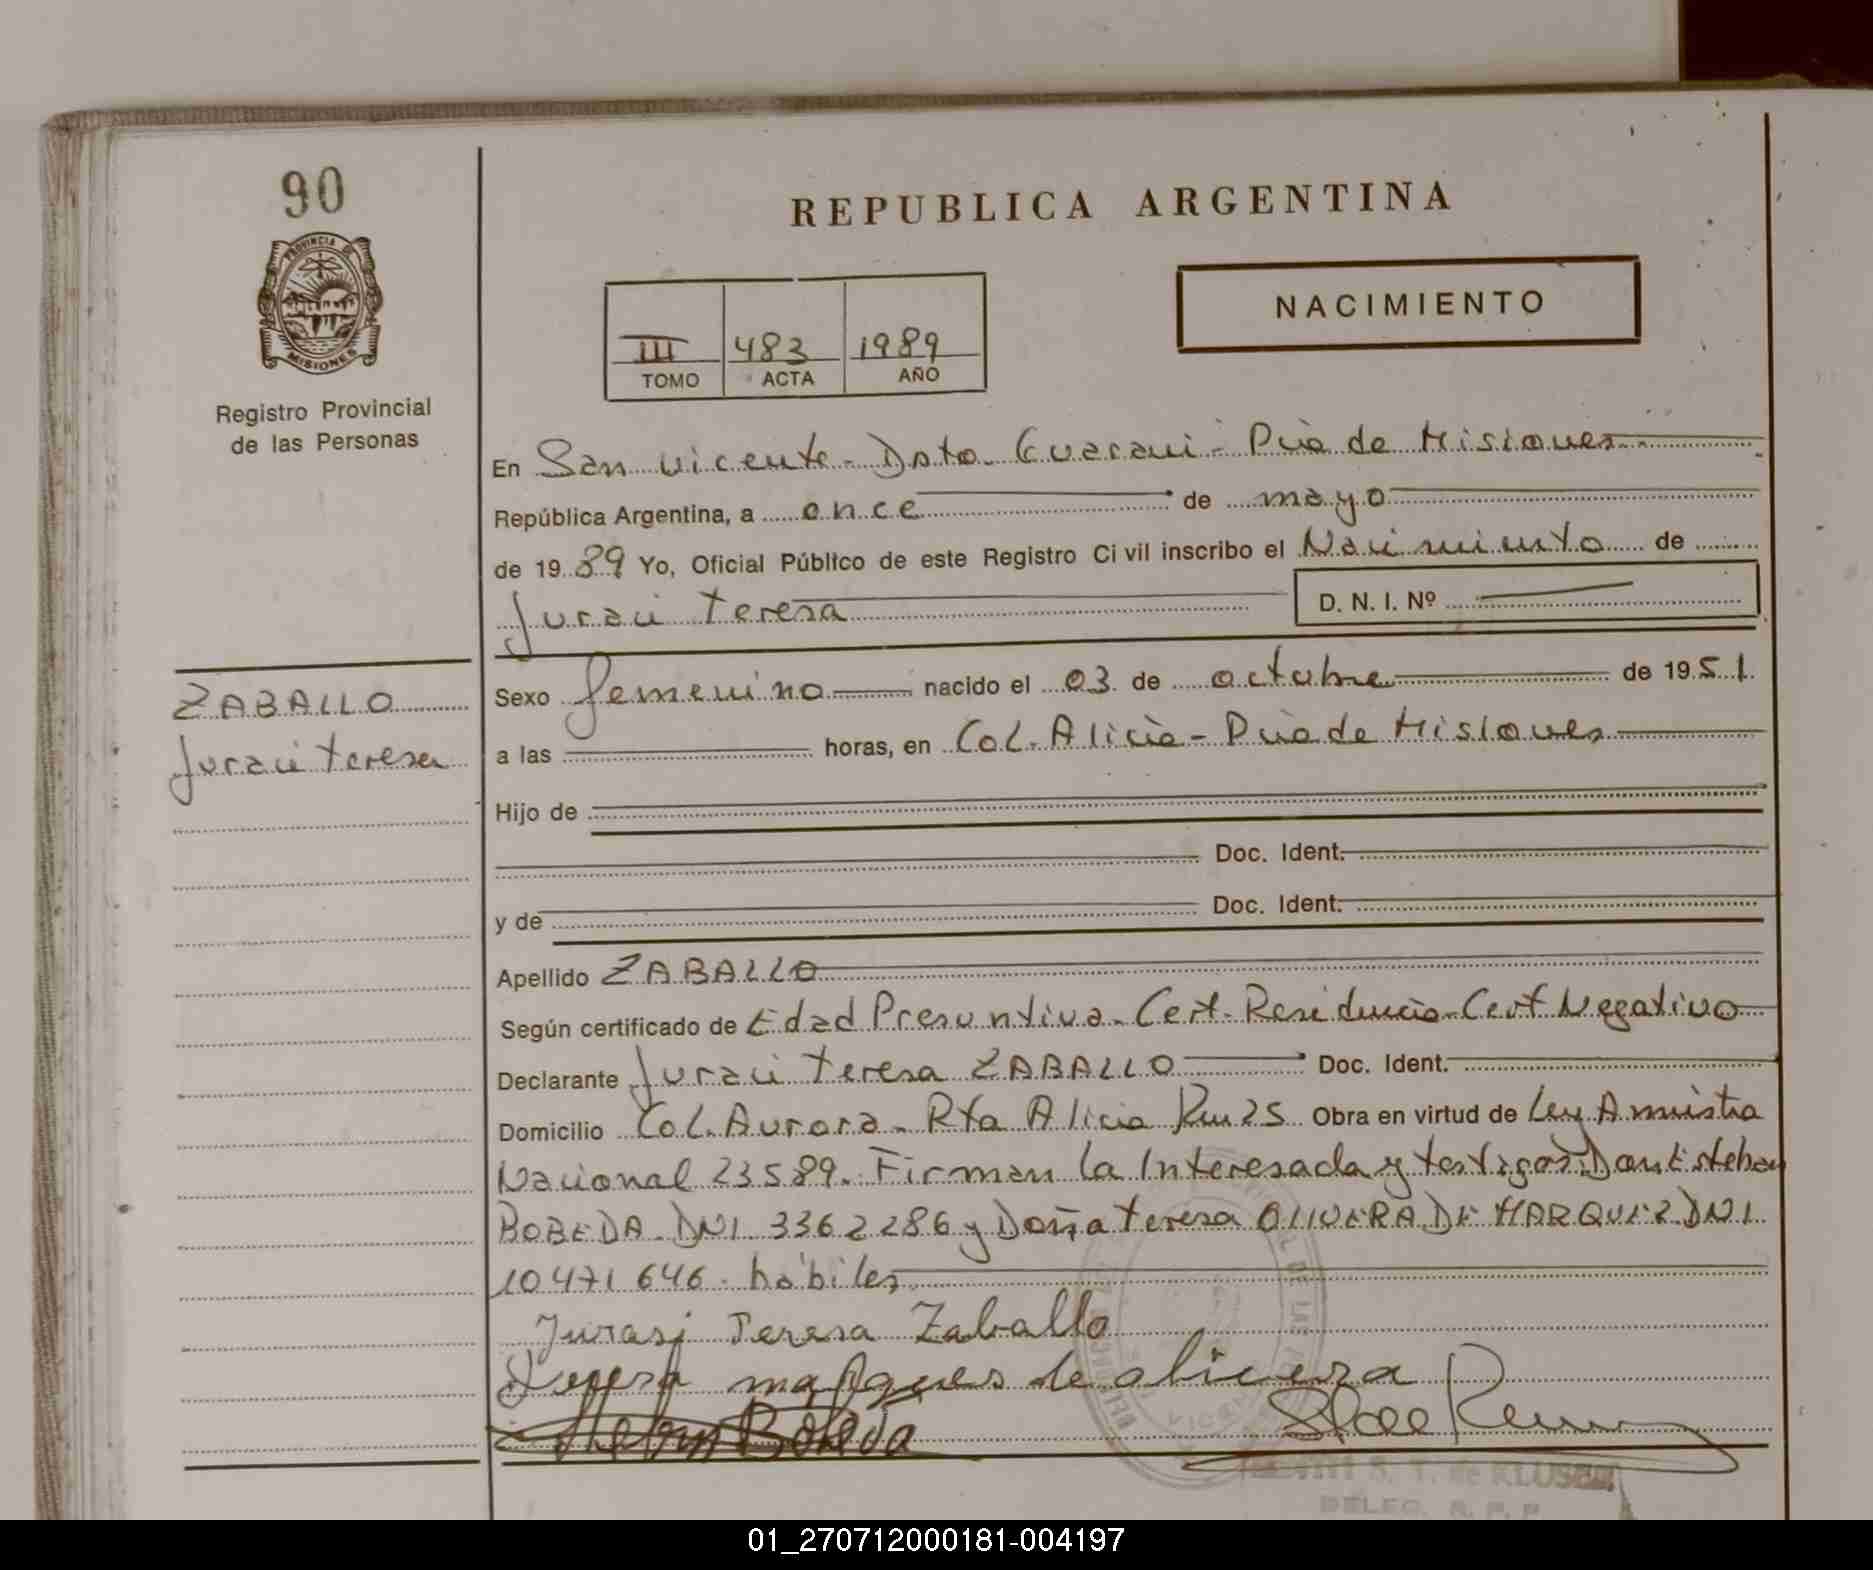 90
REPUBLICA ARGENTINA
PROVINCIA DE
MISIONES
Registro Provincial
de las Personas
NACIMIENTO
III 483 1989
TOMO ACTA AÑO
En San Vicente - Dpto. Guarani - Pcia de Misiones
República Argentina, a once de mayo
de 19 89 Yo, Oficial Público de este Registro Ci vil inscribo el Nacimiento de
Juraci Teresa D. N. I. Nº
ZABALLO
Juraci Teresa
Sexo femenino nacido el 03 de octubre de 19 51
a las horas, en Col. Alicia - Pcia de Misiones
Hijo de
Doc. Ident.
y de Doc. Ident.
Apellido ZABALLO
Según certificado de Edad Presuntiva. Cert. Residencia - Cert Negativo
Declarante Juraci Teresa ZABALLO Doc. Ident.
Domicilio Col. Aurora - Rta Alicia Obra en virtud de Ley Amnistia
Nacional 23589. Firman la Interesada y testigos: Don Esteban
BOBEDA. DNI 3362286 y Doña Teresa OLIVERA DE MARQUEZ DNI
10471646. hábiles
Jurasi Teresa Zaballo
marques de olivera
Bobeda
S. T. de KLUSEN
DELEG. R. P. P.
01_270712000181-004197